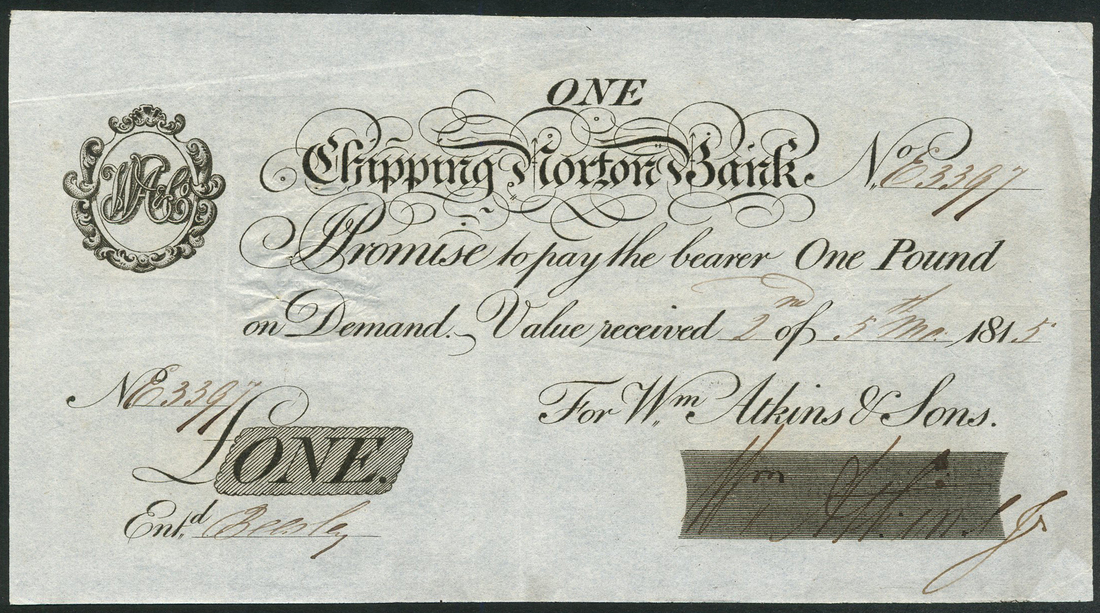 ONE
Chipping Norton Bank. No. E3397
I Promise to pay the bearer One Pound
on Demand. Value received 2nd of 5th Mo. 1815
No E3397
For Wm. Atkins & Sons.
£ONE.
Wm. Atkins Jr
Entd. Beesley